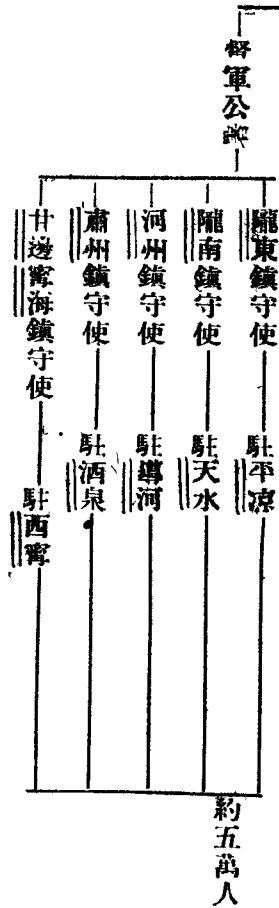 督軍公署
隴東鎮守使 駐平凉
隴南鎮守使 駐天水
河州鎮守使 駐導河
肅州鎮守使 駐酒泉
甘邊寗海鎮守使 駐西寗
約五萬人